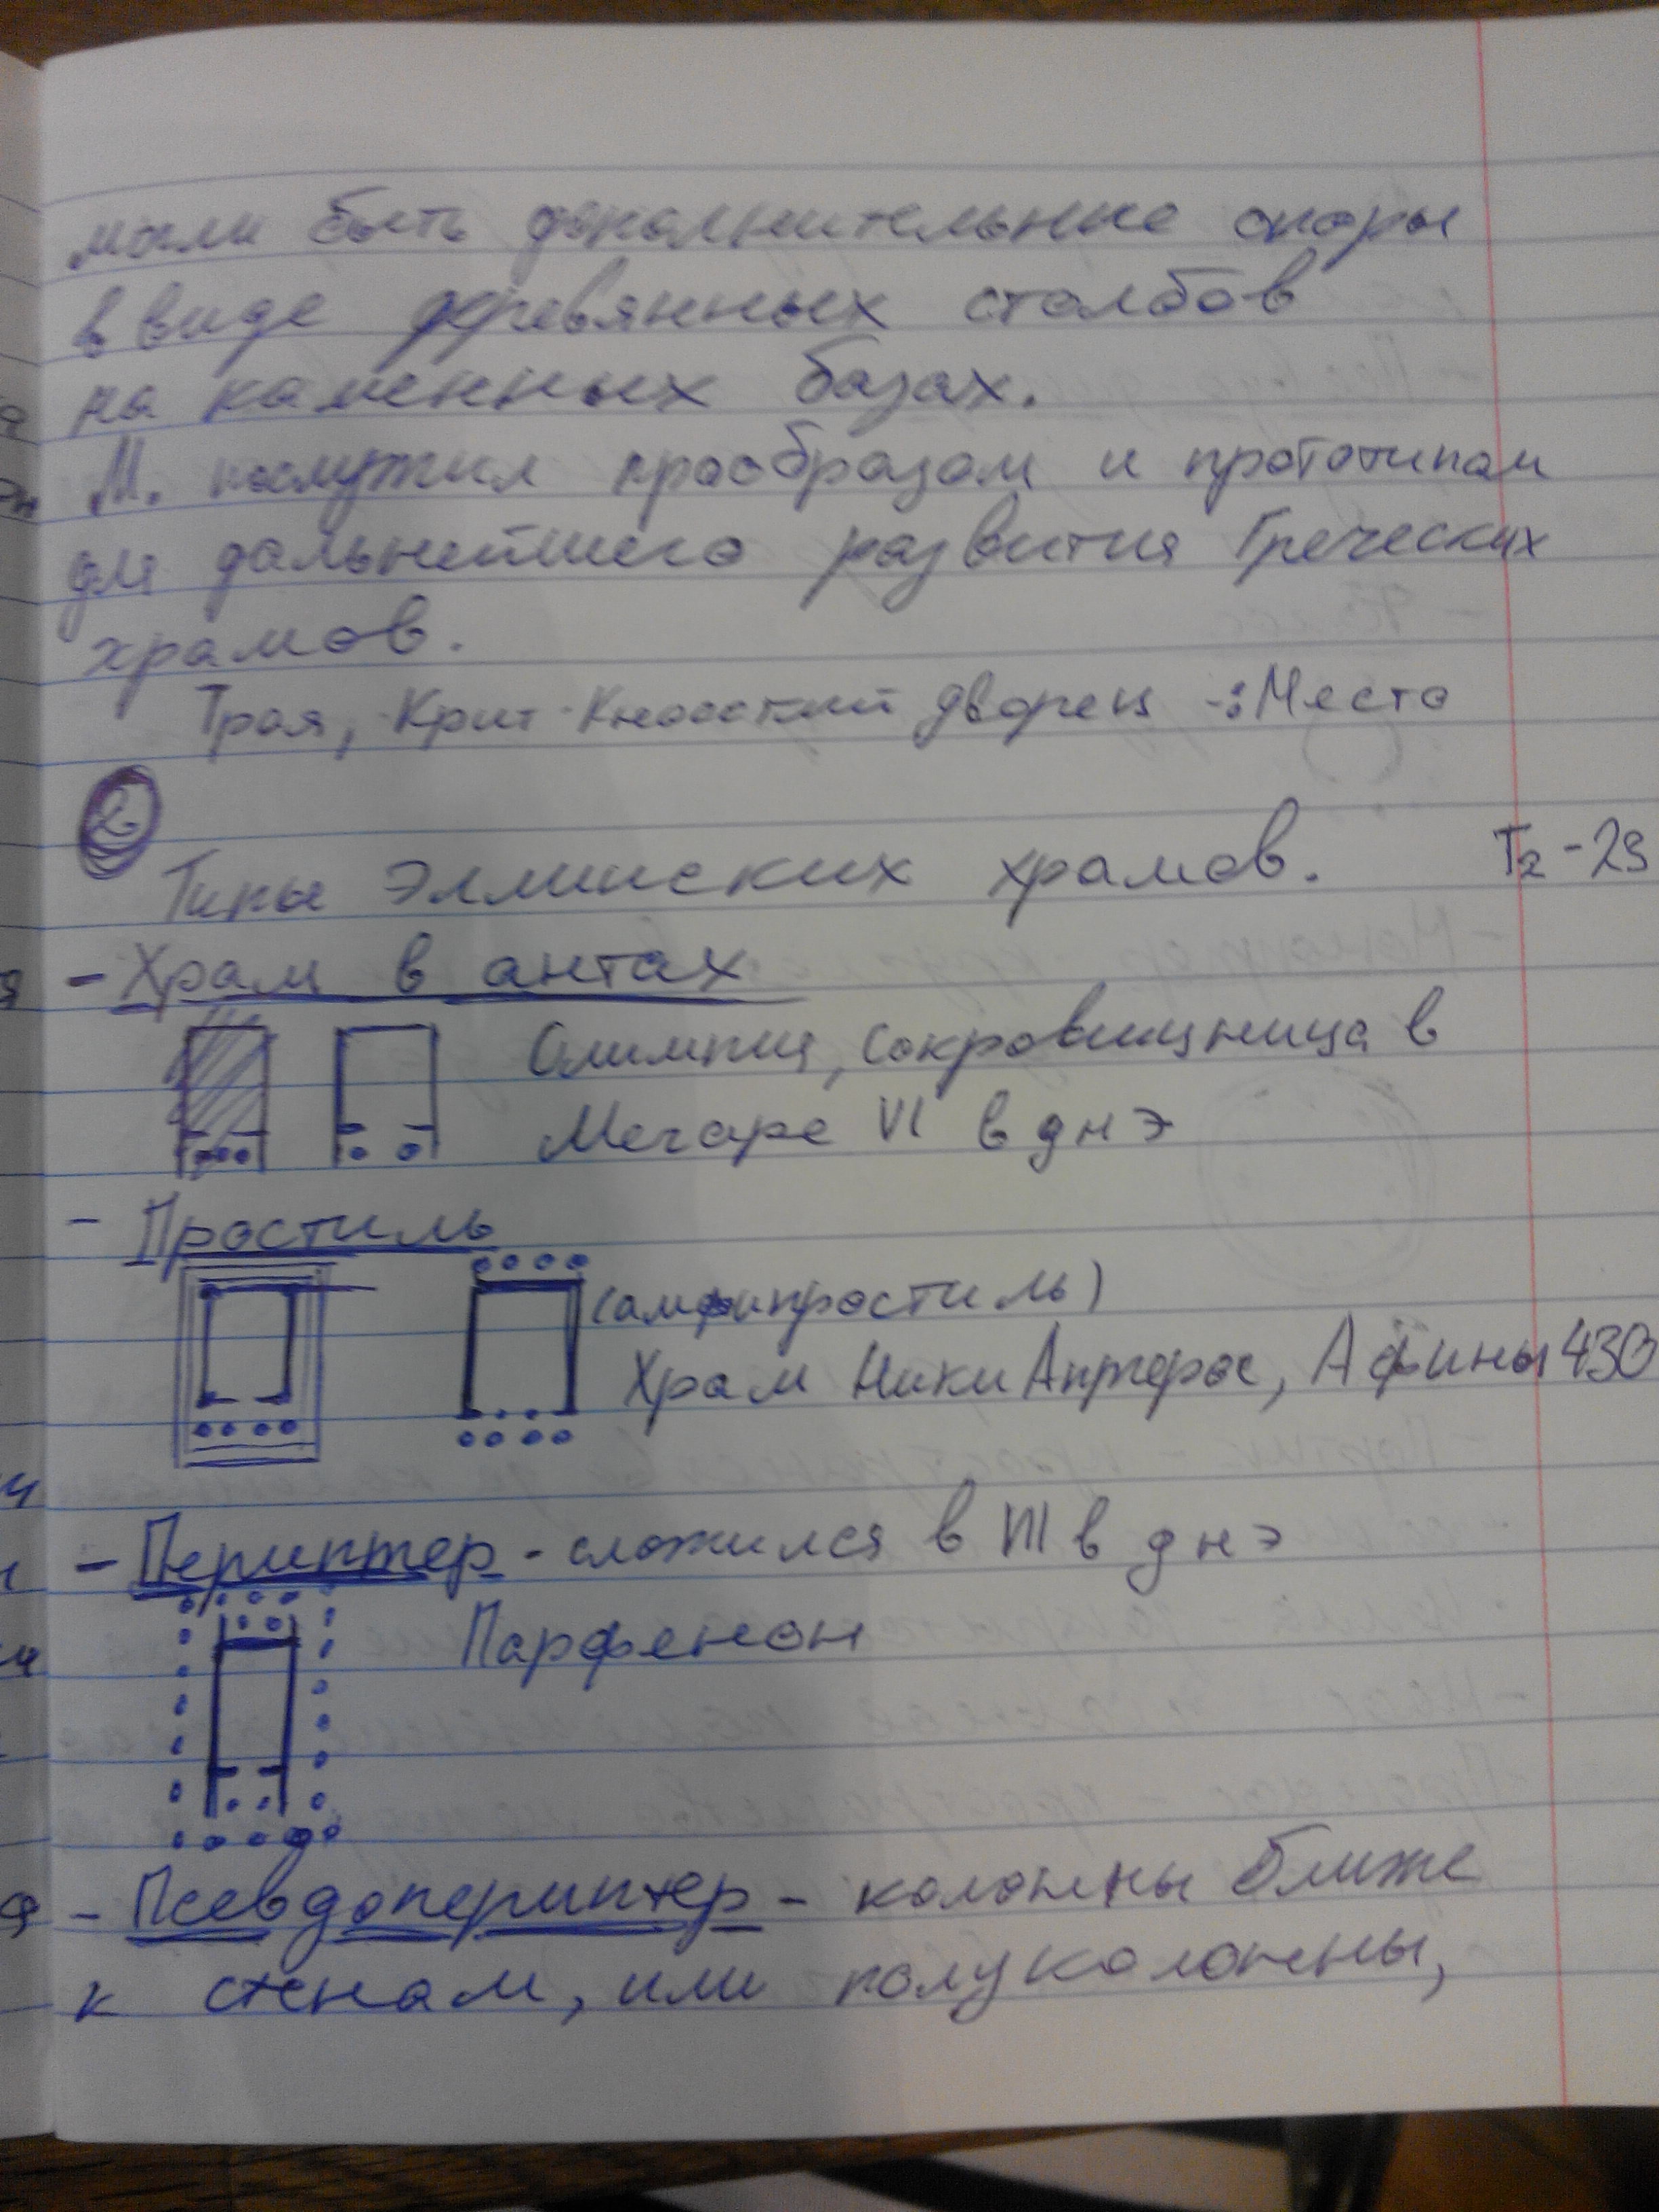 могли быть дополнительные опоры
в виде деревянных столбов
на каменных базах.
М. послужил прообразом и прототипом
для дальнейшего развития Греческих
храмов.
Троя, Крит - Кносский дворец -: Место
2
Типы эллинских храмов. Т2 - 29
- Храм в антах
Олимпия, сокровищница в
Мегаре VI в днэ
- Простиль
(амфипростиль)
Храм Ники Аптерос, Афины 430
- Периптер - сложился в VII в днэ
Парфенон
- Псевдопериптер - колонны ближе
к стенам, или полуколонны,